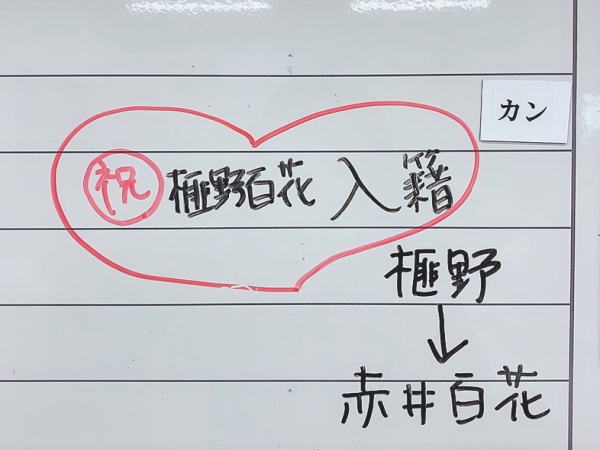 カン
祝 榧野百花 入籍
榧野
↓
赤井百花